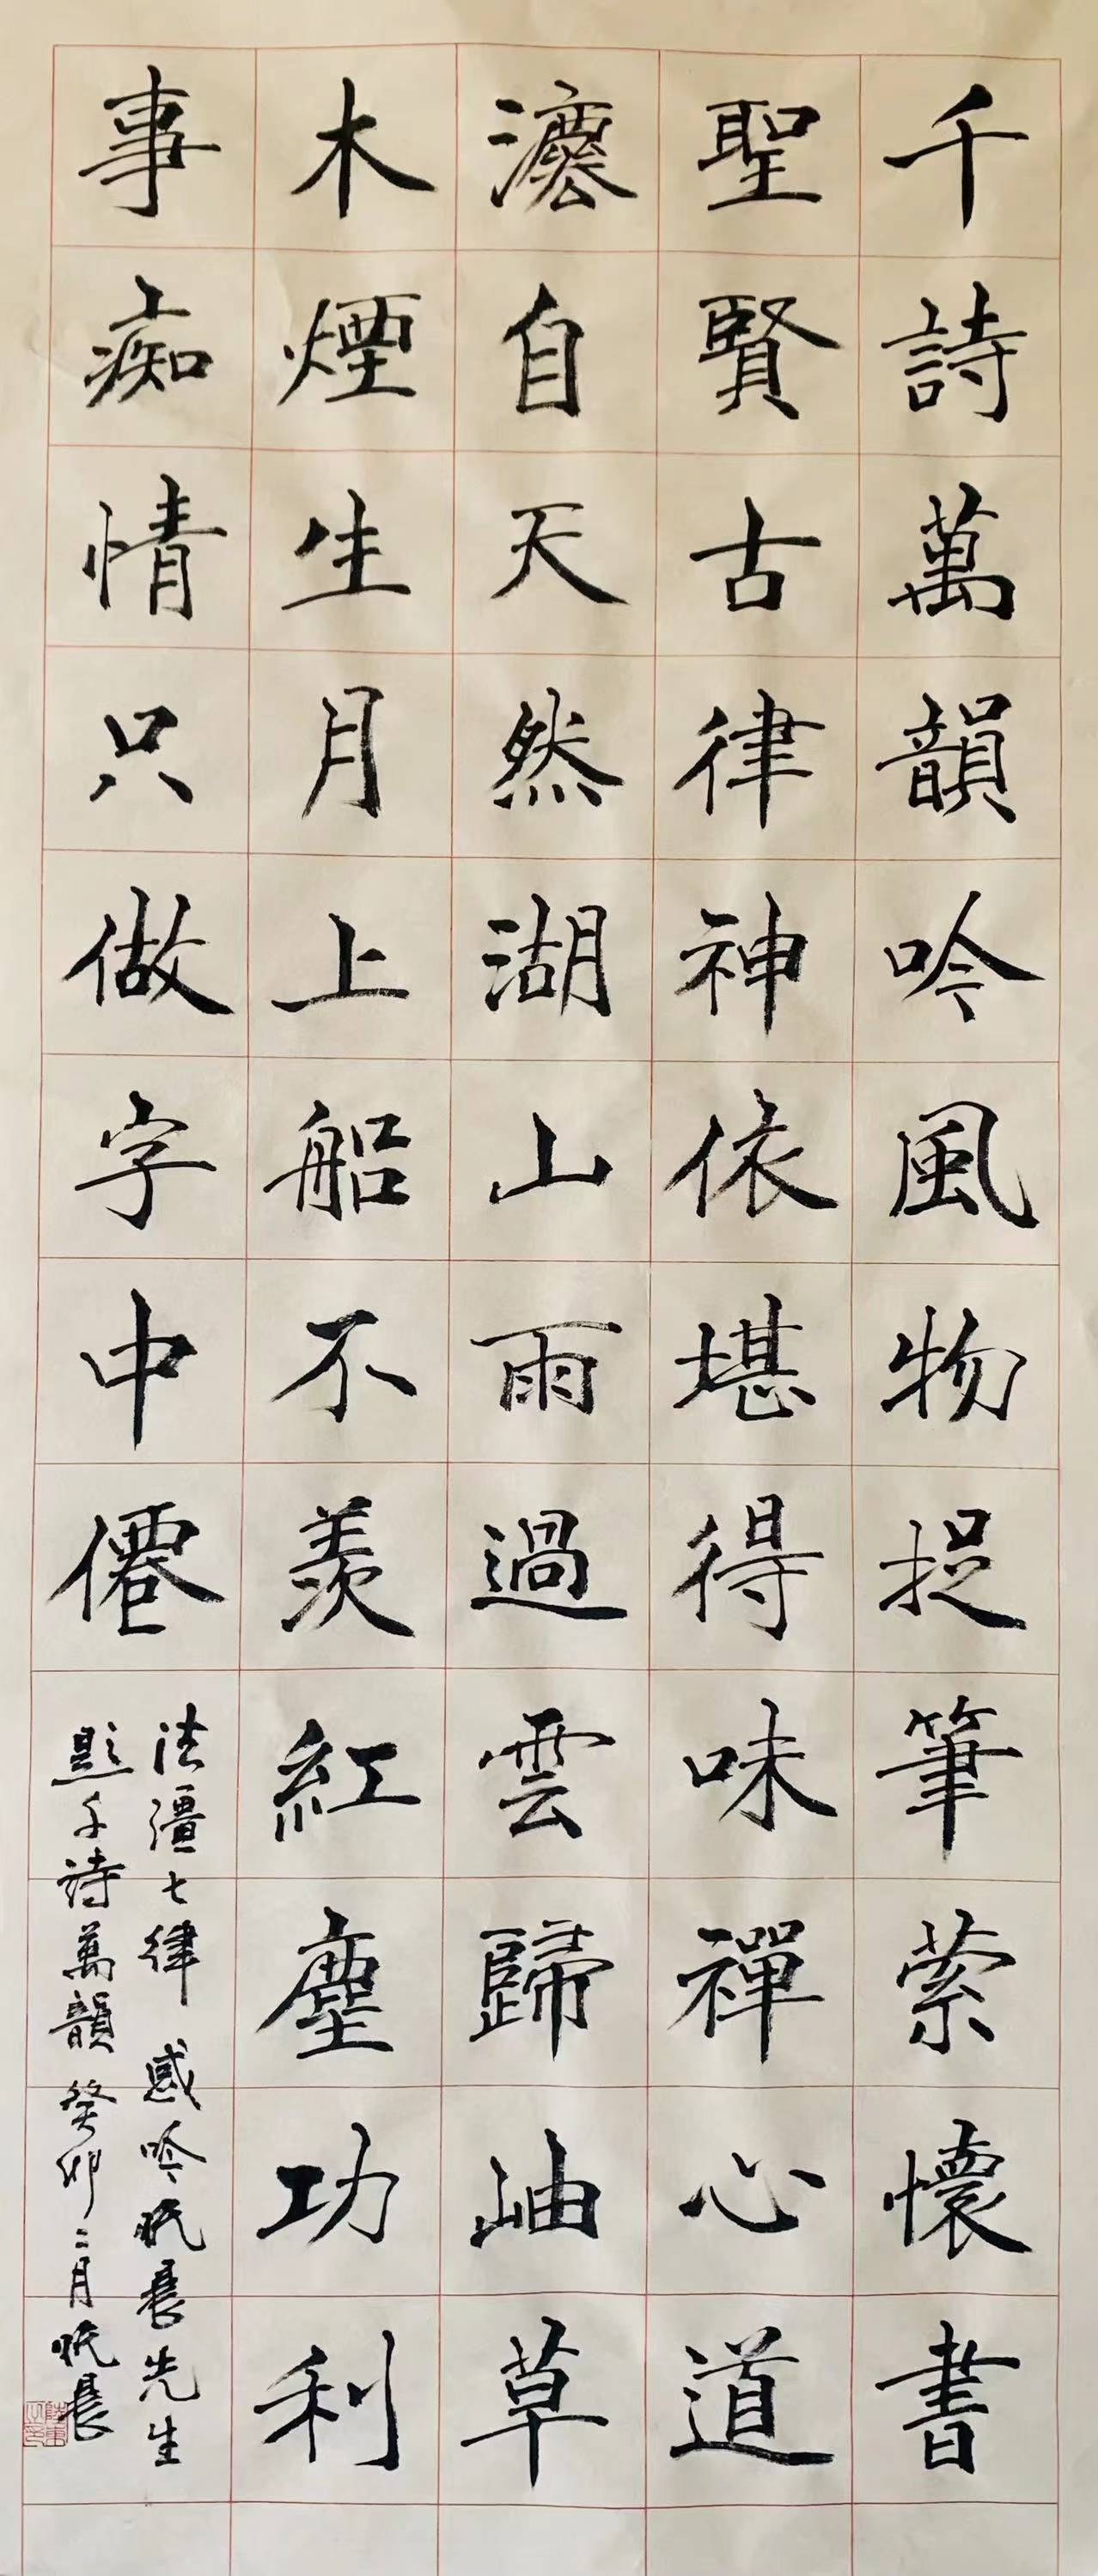 千詩萬韻吟風物捉筆萦懷書
聖賢古律神依堪得味禪心道
瀍自天然湖山雨過雲歸岫草
木煙生月上船不羨紅塵功利
事痴情只做字中僊
法溫七律 感吟帆長先生
題千詩萬韻 癸卯二月帆長